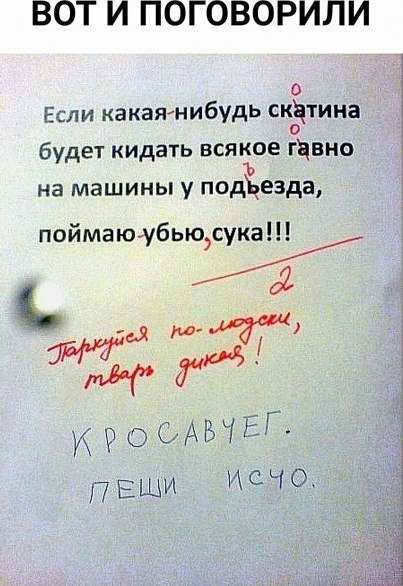 ВОТ И ПОГОВОРИЛИ
Если какая-нибудь скатина
о
будет кидать всякое гавно
о
на машины у подьезда,
ъ
поймаю-убью, сука!!!
2
Паркуйся по-людски,
тварь дикая!
КРОСАВЧЕГ.
ПЕШИ ИСЧО.